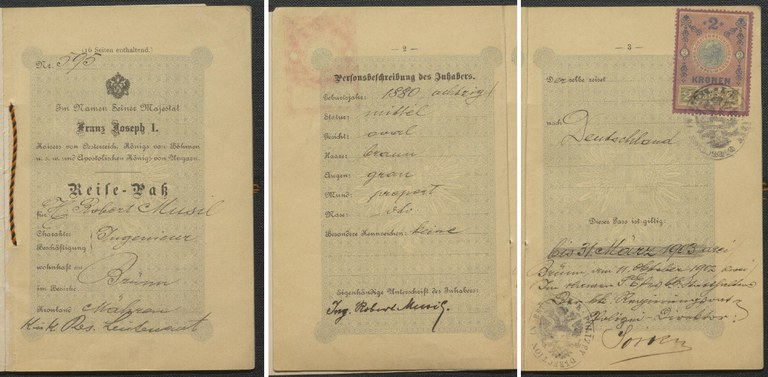 (16 Seiten enthaltend.)
Nr. 595
Im Namen Seiner Majestät
Franz Joseph I.
Kaiser von Oesterreich, König von Böhmen
u. s. w. und Apostolischer König von Ungarn.
Reise-Paß
für Robert Musil
Charakter
Beschäftigung
Ingenieur
wohnhaft zu
Brünn
im Bezirke
Kronland Mähren
K. u. k. Res. Leutenant
— 2 —
Personsbeschreibung des Inhabers.
Geburtsjahr: 1880 achtzig!
Statur: mittel
Gesicht: oval
Haare: braun
Augen: grau
Mund: proport
Nase: dto
Besondere Kennzeichen: keine
Eigenhändige Unterschrift des Inhabers:
Ing. Robert Musil.
— 3 —
2
KRONEN
Derselbe reist
nach
Deutschland
Dieser Pass ist giltig:
bis 31 März 1903 drei
Brünn, am 11. Oktober 1902 zwei
Im Namen Sr. Exc. des k. k. Statthalters
Der k. k. Regierungsrat
Polizei-Direktor: